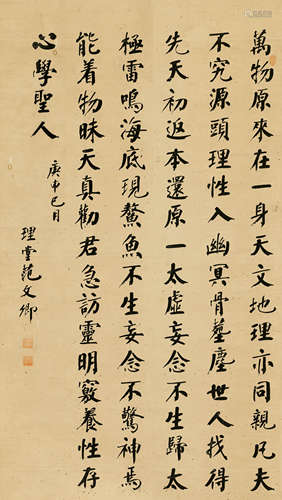 萬物原來在一身天文地理亦同親凡夫
不究源頭理性入幽冥骨墓塵世人找得
先天初返本還原一太虛妄念不生歸太
極雷鳴海底現鰲魚不生妄念不驚神焉
能着物昧天真勸君急訪靈明竅養性存
心學聖人
庚申巳月
理堂范文卿